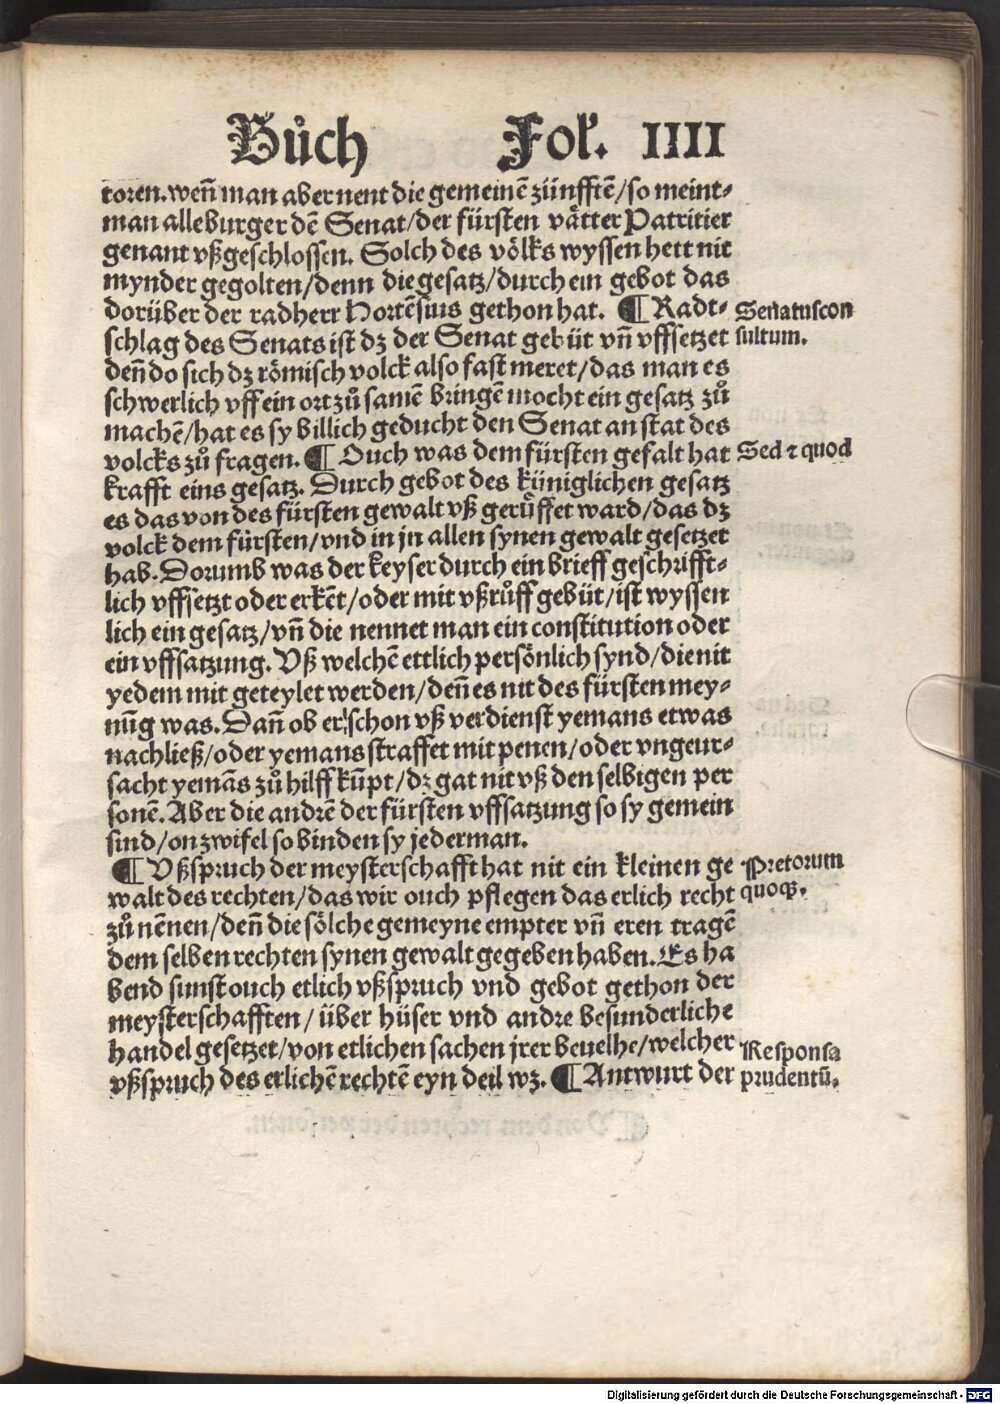 Bůch Fol. IIII
toren. weñ man aber nent die gemeinē zünfftē/so meint⸗
man alle burger dē Senat/der fürsten vätter Patritier
genant vßgeschlossen. Solch des völks wyssen hett nit
mynder gegolten/denn die gesatz/durch ein gebot das
dorüber der radherr Hortēsius gethon hat. ¶ Radt⸗
Senatuscon
schlag des Senats ist dz der Senat gebüt vñ vffsetzet
sultum.
deñ do sich dz römisch volck also fast meret/das man es
schwerlich vff ein ort zů samē bringē mocht ein gesatz zů
machē/hat es sy billich geducht den Senat an stat des
volcks zů fragen. ¶ Ouch was dem fürsten gefalt hat
Sed ⁊ quod
krafft eins gesatz. Durch gebot des küniglichen gesatz
es das von des fürsten gewalt vß gerůffet ward/das dz
volck dem fürsten/vnd in jn allen synen gewalt gesetzet
hab. Dorumb was der keyser durch ein brieff geschrifft⸗
lich vffsetzt oder erkēt/oder mit vßrůff gebüt/ist wyssen
lich ein gesatz/vñ die nennet man ein constitution oder
ein vffsatzung. Vß welchē ettlich persönlich synd/die nit
yedem mit geteylet werden/deñ es nit des fürsten mey⸗
nūg was. Dañ ob er schon vß verdienst yemans etwas
nachließ/oder yemans straffet mit penen/oder vngeur⸗
sacht yemās zů hilff kūpt/dz gat nit vß den selbigen per
sonē. Aber die andrē der fürsten vffsatzung so sy gemein
sind/on zwifel so binden sy jederman.
¶ Vßspruch der meysterschafft hat nit ein kleinen ge
Pretorum
walt des rechten/das wir ouch pflegen das erlich recht
quoqꝫ.
zů nēnen/deñ die sölche gemeyne empter vñ eren tragē
dem selben rechten synen gewalt gegeben haben. Es ha
bend sunst ouch etlich vßspruch vnd gebot gethon der
meysterschafften/über hüser vnd andre besunderliche
handel gesetzet/von etlichen sachen jrer beuelhe/welcher
Responsa
vßspruch des erlichē rechtē eyn deil wz. ¶ Antwurt der
prudentū.
Digitalisierung gefördert durch die Deutsche Forschungsgemeinschaft - DFG